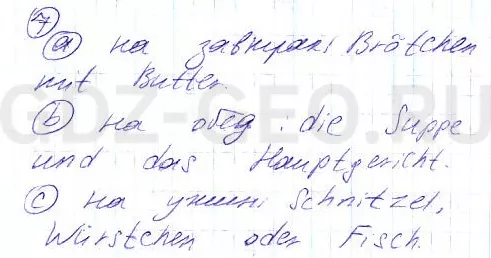 7
a на завтрак: Brötchen
mit Butter.
b на обед: die Suppe
und das Hauptgericht.
c на ужин: Schnitzel,
Würstchen oder Fisch.
GDZ-GEO.RU